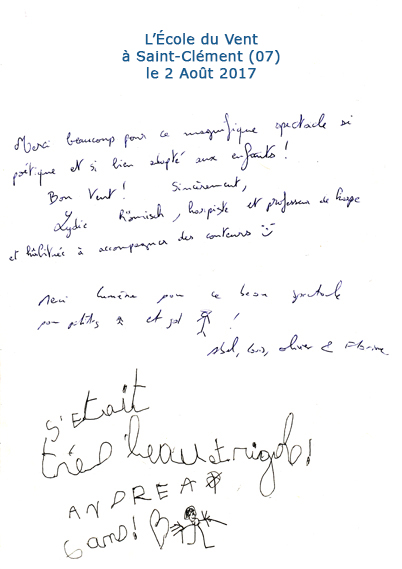 L'École du Vent
à Saint-Clément (07)
le 2 Août 2017
Merci beaucoup pour ce magnifique spectacle si
poétique et si bien adapté aux enfants !
Bon Vent ! Sincèrement,
Lydie Römisch, harpiste et professeur de harpe
et habituée à accompagner des conteurs
Merci pour ce beau spectacle
pour petits et !
Abel, , Olivier & Florine
s'Etait
très beau et rigolo!
ANDREA
6 ans!